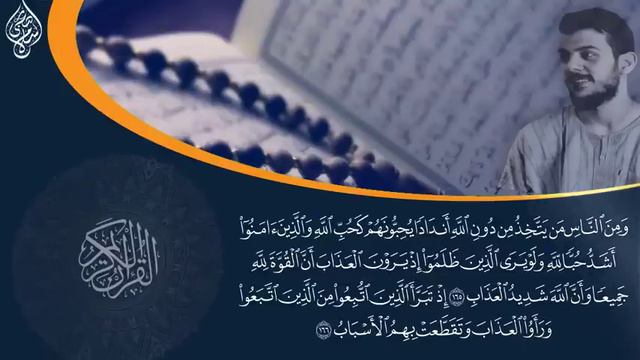 القرآن الكريم
وَمِنَ ٱلنَّاسِ مَن يَتَّخِذُ مِن دُونِ ٱللَّهِ أَندَادًا يُحِبُّونَهُمْ كَحُبِّ ٱللَّهِ وَٱلَّذِينَ ءَامَنُوٓا۟
أَشَدُّ حُبًّا لِّلَّهِ وَلَوْ يَرَى ٱلَّذِينَ ظَلَمُوٓا۟ إِذْ يَرَوْنَ ٱلْعَذَابَ أَنَّ ٱلْقُوَّةَ لِلَّهِ
جَمِيعًا وَأَنَّ ٱللَّهَ شَدِيدُ ٱلْعَذَابِ ١٦٥ إِذْ تَبَرَّأَ ٱلَّذِينَ ٱتُّبِعُوا۟ مِنَ ٱلَّذِينَ ٱتَّبَعُوا۟
وَرَأَوُا۟ ٱلْعَذَابَ وَتَقَطَّعَتْ بِهِمُ ٱلْأَسْبَابُ ١٦٦